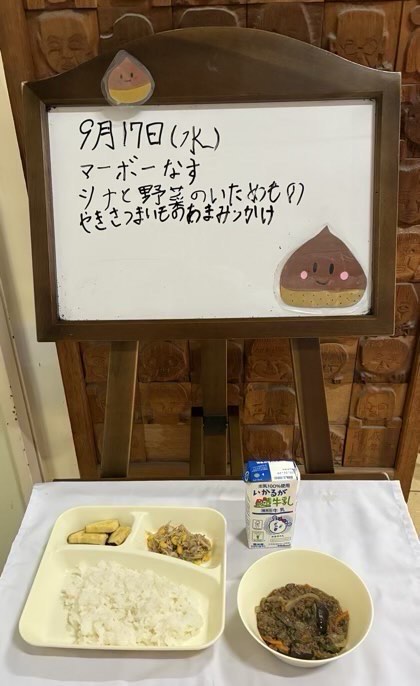 9月17日(水)
マーボーなす
シナと野菜のいためもの
やきさつまいものあまみつかけ
生乳100%使用
いかるが
牛乳